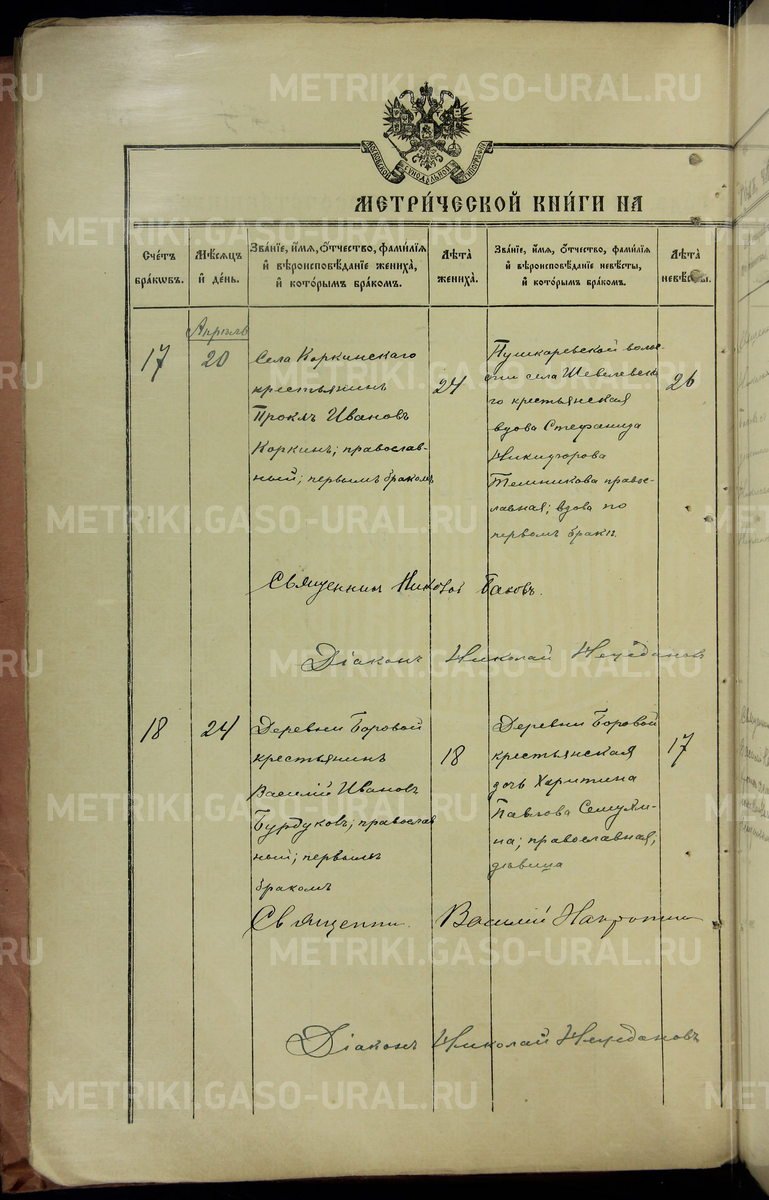 METRIKI.GASO-URAL.RU
МОСКОВСКОЙ СѴНОДАЛЬНОЙ ТИПОГРАФІИ
МЕТРИ́ЧЕСКОЙ КНИ́ГИ НА
Сче́тъ бра́кѡвъ.
Мѣ́сяцъ и҆ де́нь.
Зва́нїе, и҆́мя, ѻ҆́тчество, фами́лїя и҆ вѣроисповѣ́данїе жениха̀, и҆ кото́рымъ бра́комъ.
Лѣ́та жениха̀.
Зва́нїе, и҆́мя, ѻ҆́тчество, фами́лїя и҆ вѣроисповѣ́данїе невѣ́сты, и҆ кото́рымъ бра́комъ.
Лѣ́та невѣ́сты.
Апрѣль
17
20
Села Коркинскаго
крестьянинъ
Проклъ Ивановъ
Коркинъ; православ-
ный; первымъ бракомъ
24
Пушкаревской воло-
сти села Шевелевска-
го крестьянская
вдова Стефанида
Никифорова
Темникова право-
славная; вдова по
первомъ бракѣ.
26
Священникъ Николай
Діаконъ Николай
18
24
Деревни Боровой
крестьянинъ
Василій Ивановъ
Бурдуковъ; православ
ный; первымъ
бракомъ
18
Деревни Боровой
крестьянская
дочь Харитина
Павлова
на; православная;
дѣвица
17
Священник Василій
Діаконъ Николай